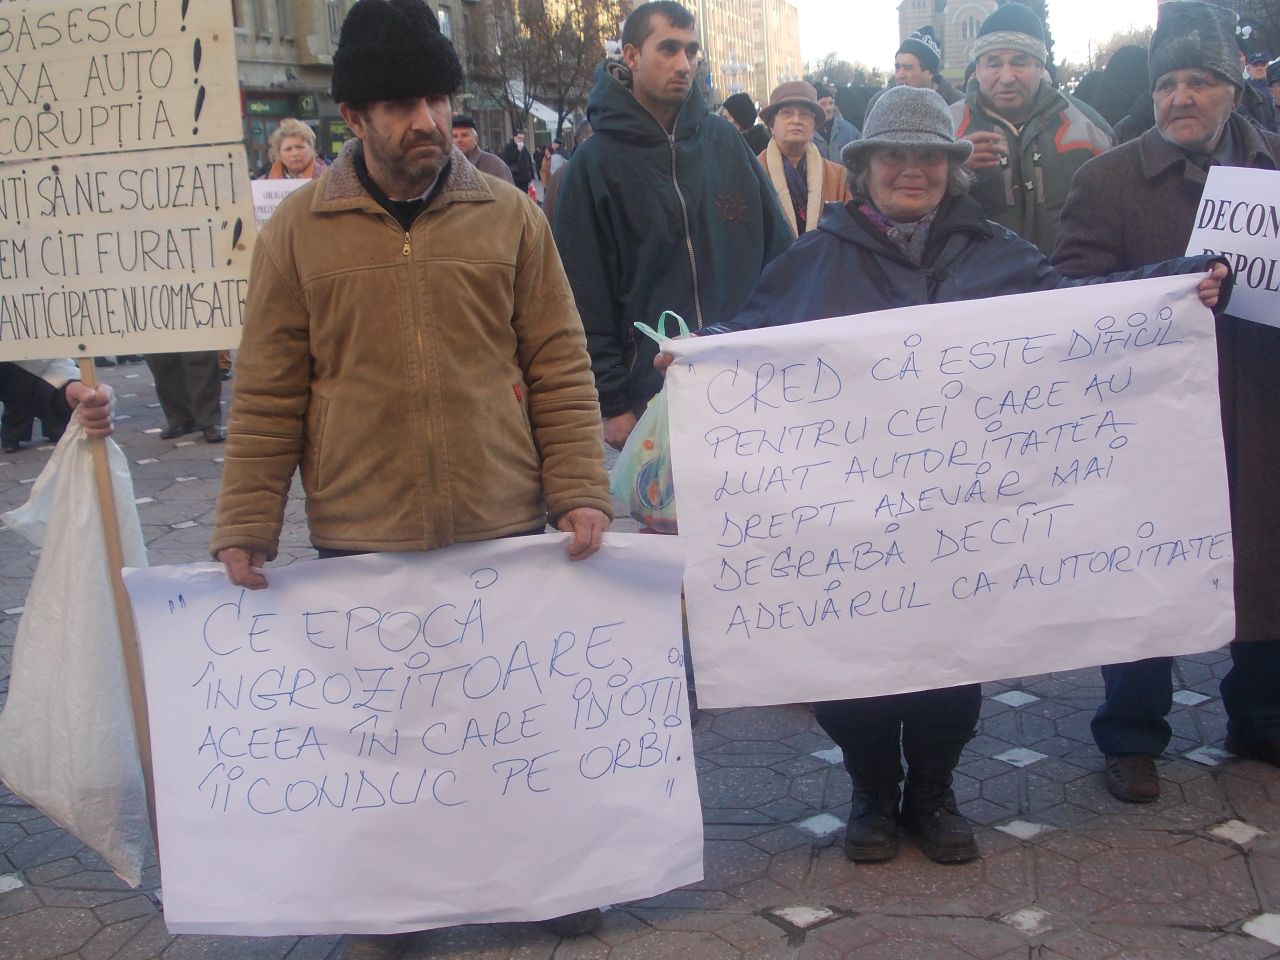 BĂSESCU!
AXA AUTO!
CORUPȚIA!
SĂ NE SCUZAȚI
CÎT FURAȚI"!
ANTICIPATE, NU COMASATE
"CE EPOCĂ
ÎNGROZITOARE,
ACEEA ÎN CARE IDIOȚII
ÎI CONDUC PE ORBI.
"
"CRED CĂ ESTE DIFICIL
PENTRU CEI CARE AU
LUAT AUTORITATEA
DREPT ADEVĂR MAI
DEGRABĂ DECÎT
ADEVĂRUL CA AUTORITATE.
"
DECON